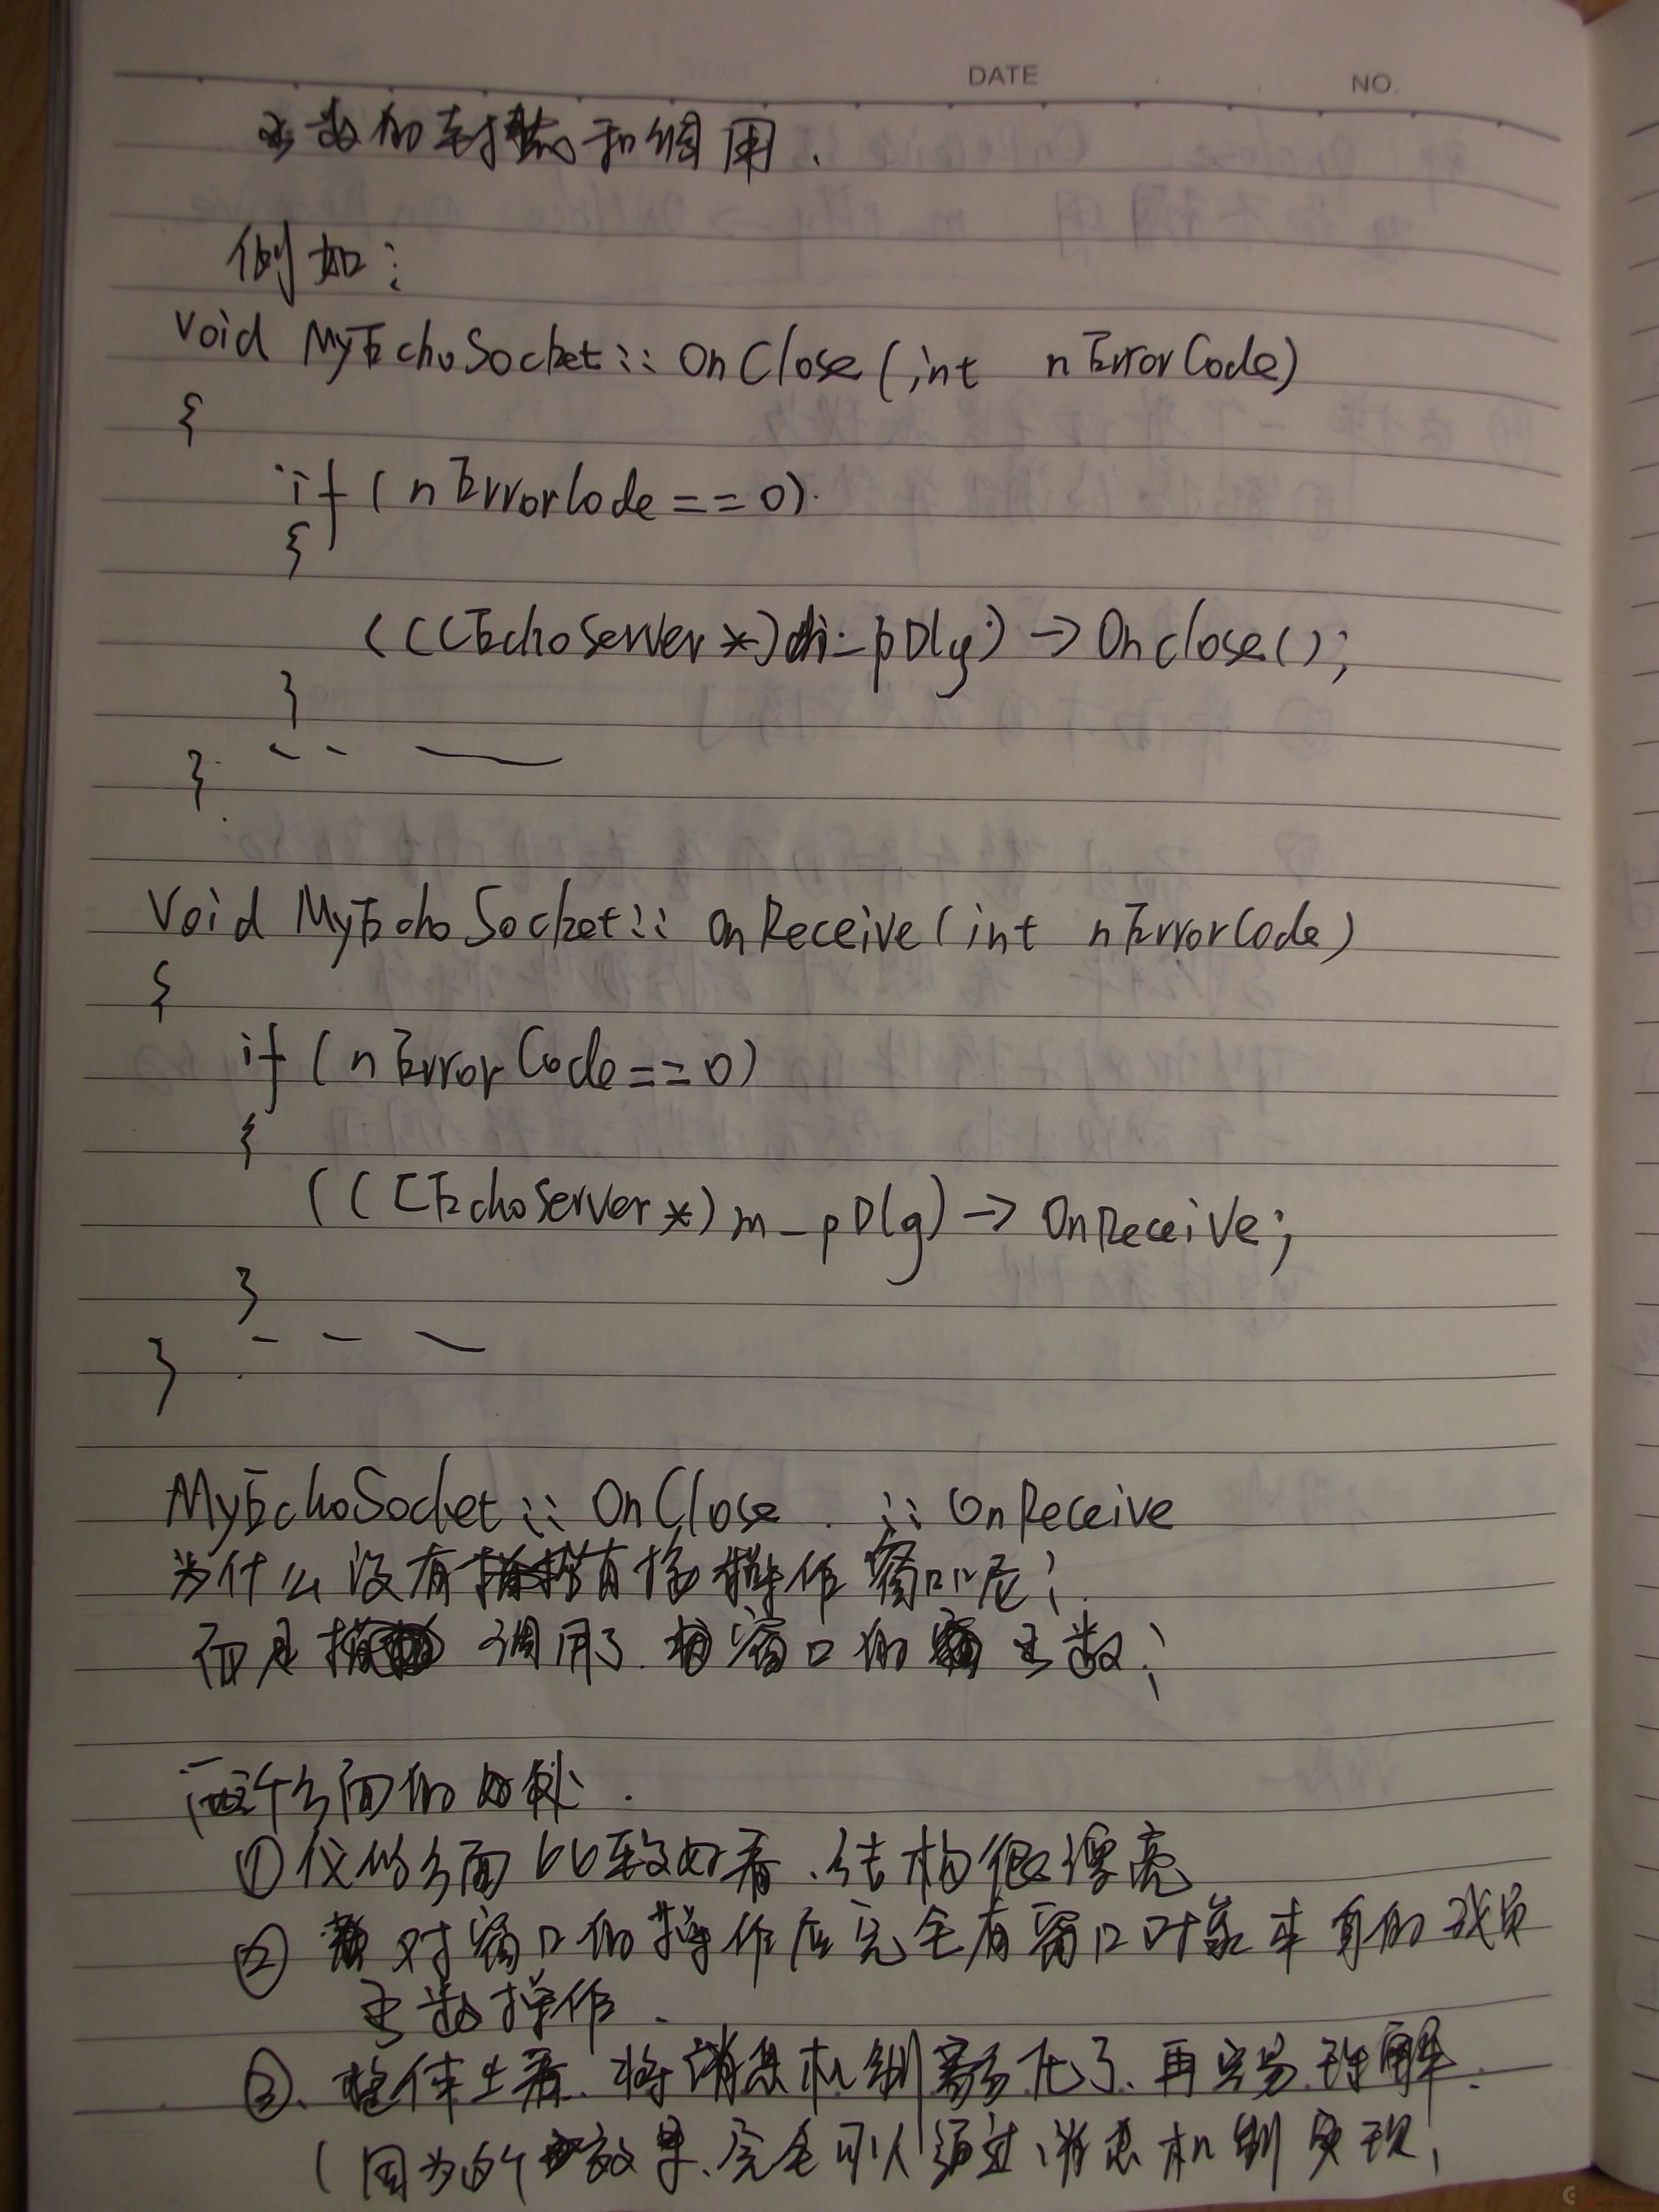 DATE NO.
函数的封装和调用.
例如:
void MyEchoSocket::OnClose(int nErrorCode)
{
if (nErrorCode==0)
{
((CEchoServer*)m_pDlg)->Onclose();
}
}
Void MyEchoSocket::OnReceive(int nErrorCode)
{
if (nErrorCode==0)
{
((CEchoServer*)m_pDlg)->OnReceive;
}
}
MyEchoSocket::OnClose. ::OnReceive
为什么没有直接操作窗口呢;
而是调用了窗口的函数;
两个方面的好处.
①代码方面比较好看、结构很漂亮
② 对窗口的操作应完全有窗口对象本身的成员
函数操作.
③、整体上看.将消息机制化了.再容易理解.
(因为的效果、完全可以通过消息机制实现,